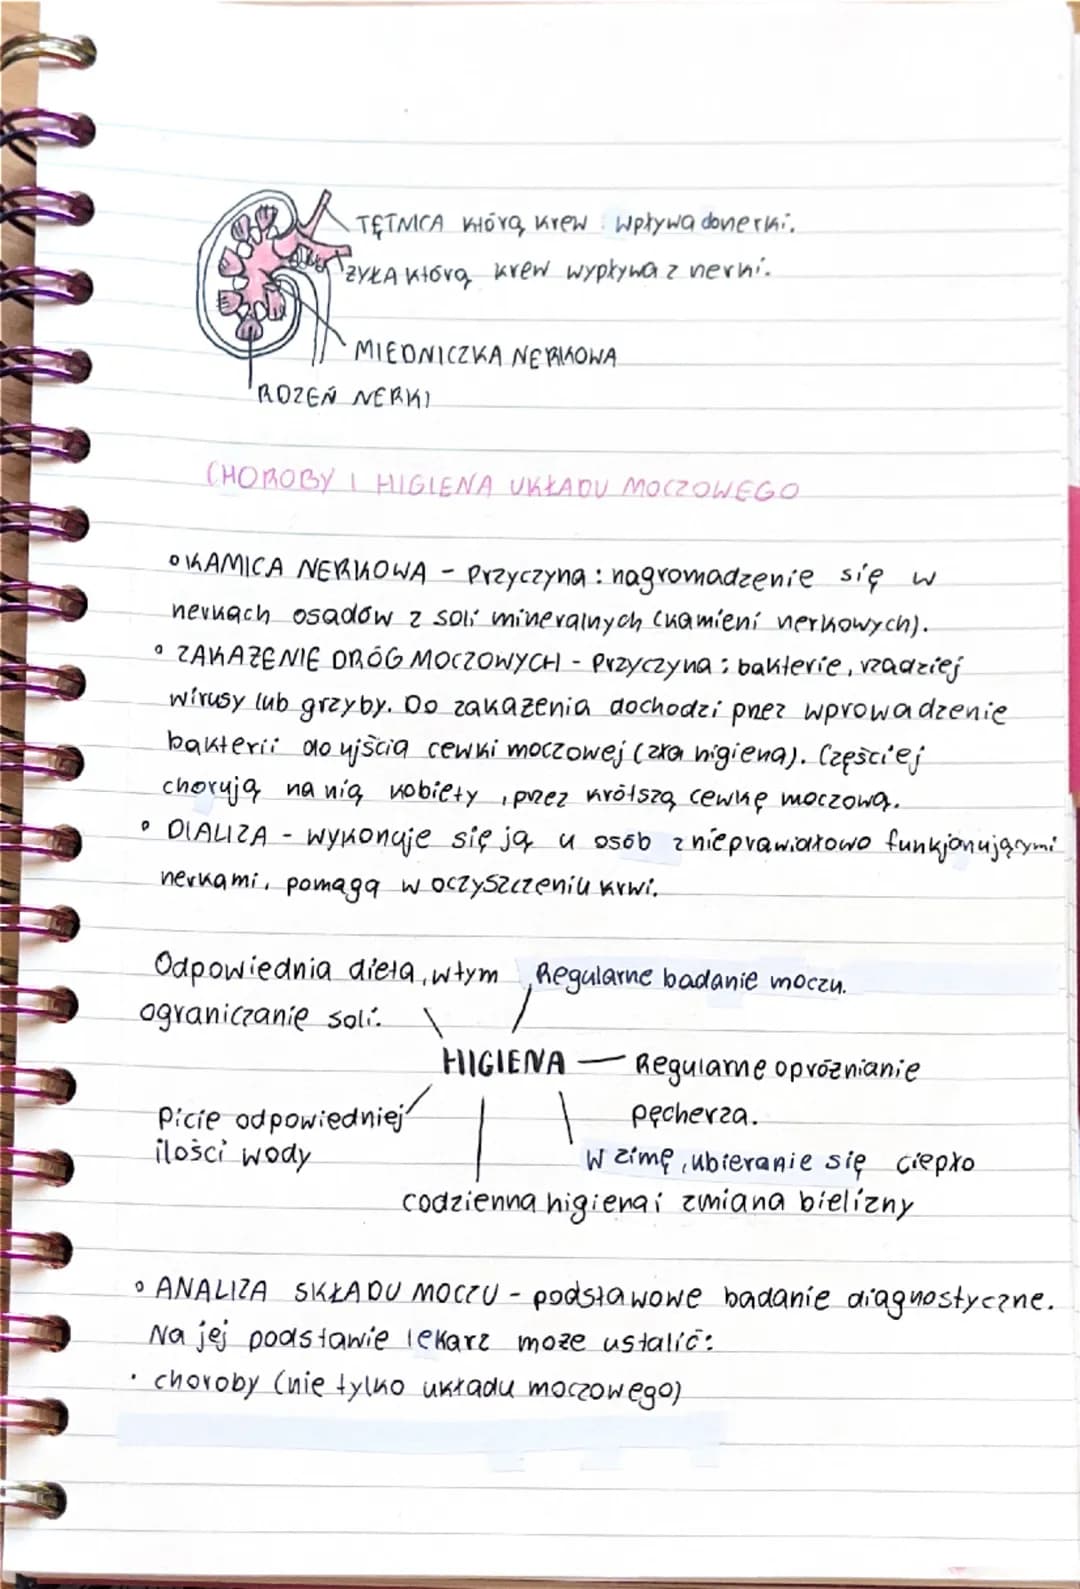 TĘTNICA którą krew wpływa do nerki.
ŻYŁA którą krew wypływa z nerki.
MIEDNICZKA NERKOWA
RDZEŃ NERKI
CHOROBY I HIGIENA UKŁADU MOCZOWEGO
• KAMICA NERKOWA - Przyczyna: nagromadzenie się w
nerkach osadów z soli mineralnych (kamieni nerkowych).
• ZAKAŻENIE DRÓG MOCZOWYCH - Przyczyna: bakterie, rzadziej
wirusy lub grzyby. Do zakażenia dochodzi przez wprowadzenie
bakterii do ujścia cewki moczowej (zła higiena). Częściej
chorują na nią kobiety, przez krótszą cewkę moczową.
• DIALIZA - wykonuje się ją u osób z nieprawidłowo funkjonującymi
nerkami, pomaga w oczyszczeniu krwi.
Odpowiednia dieta, w tym
ograniczanie soli.
Regularne badanie moczu.
HIGIENA — Regularne opróżnianie
pęcherza.
Picie odpowiedniej
ilości wody
W zimę, ubieranie się ciepło
codzienna higiena i zmiana bielizny
• ANALIZA SKŁADU MOCZU - podstawowe badanie diagnostyczne.
Na jej podstawie lekarz może ustalić:
• choroby (nie tylko układu moczowego)